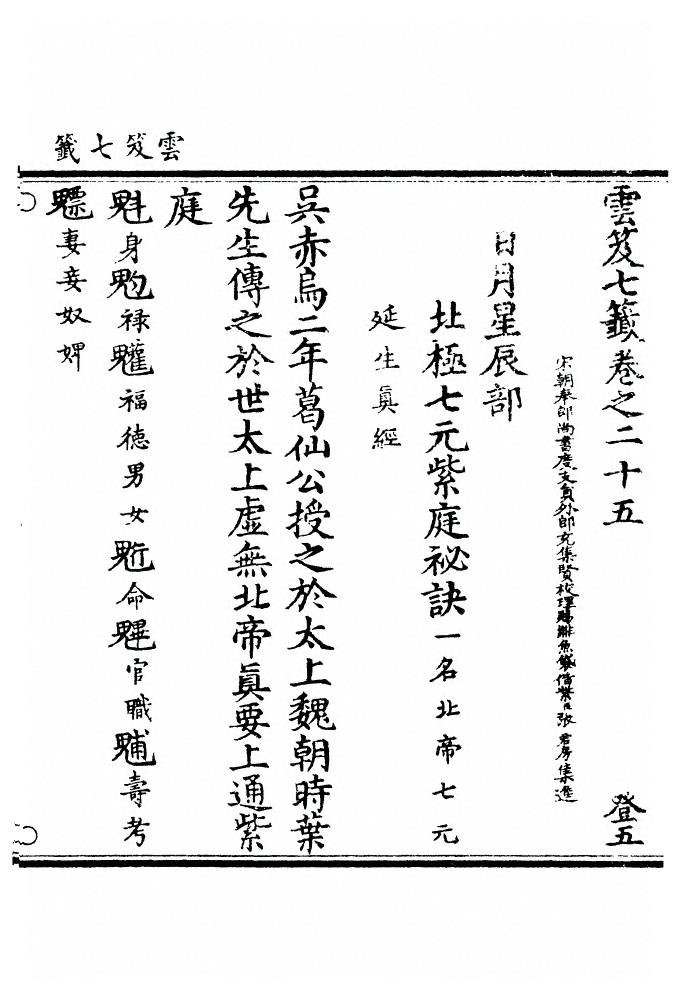 雲笈七籤
雲笈七籤卷之二十五 登五
宋朝奉郎尚書度支員外郎充集賢校理賜緋魚袋借紫臣張君房集進
日月星辰部
北極七元紫庭祕訣一名北帝七元
延生眞經
吳赤烏二年葛仙公授之於太上魏朝時葉
先生傳之於世太上虛無北帝眞要上通紫
庭
魁身𩲃禄𩵄福德男女䰢命魓官職𩳐壽考
魒妻妾奴婢